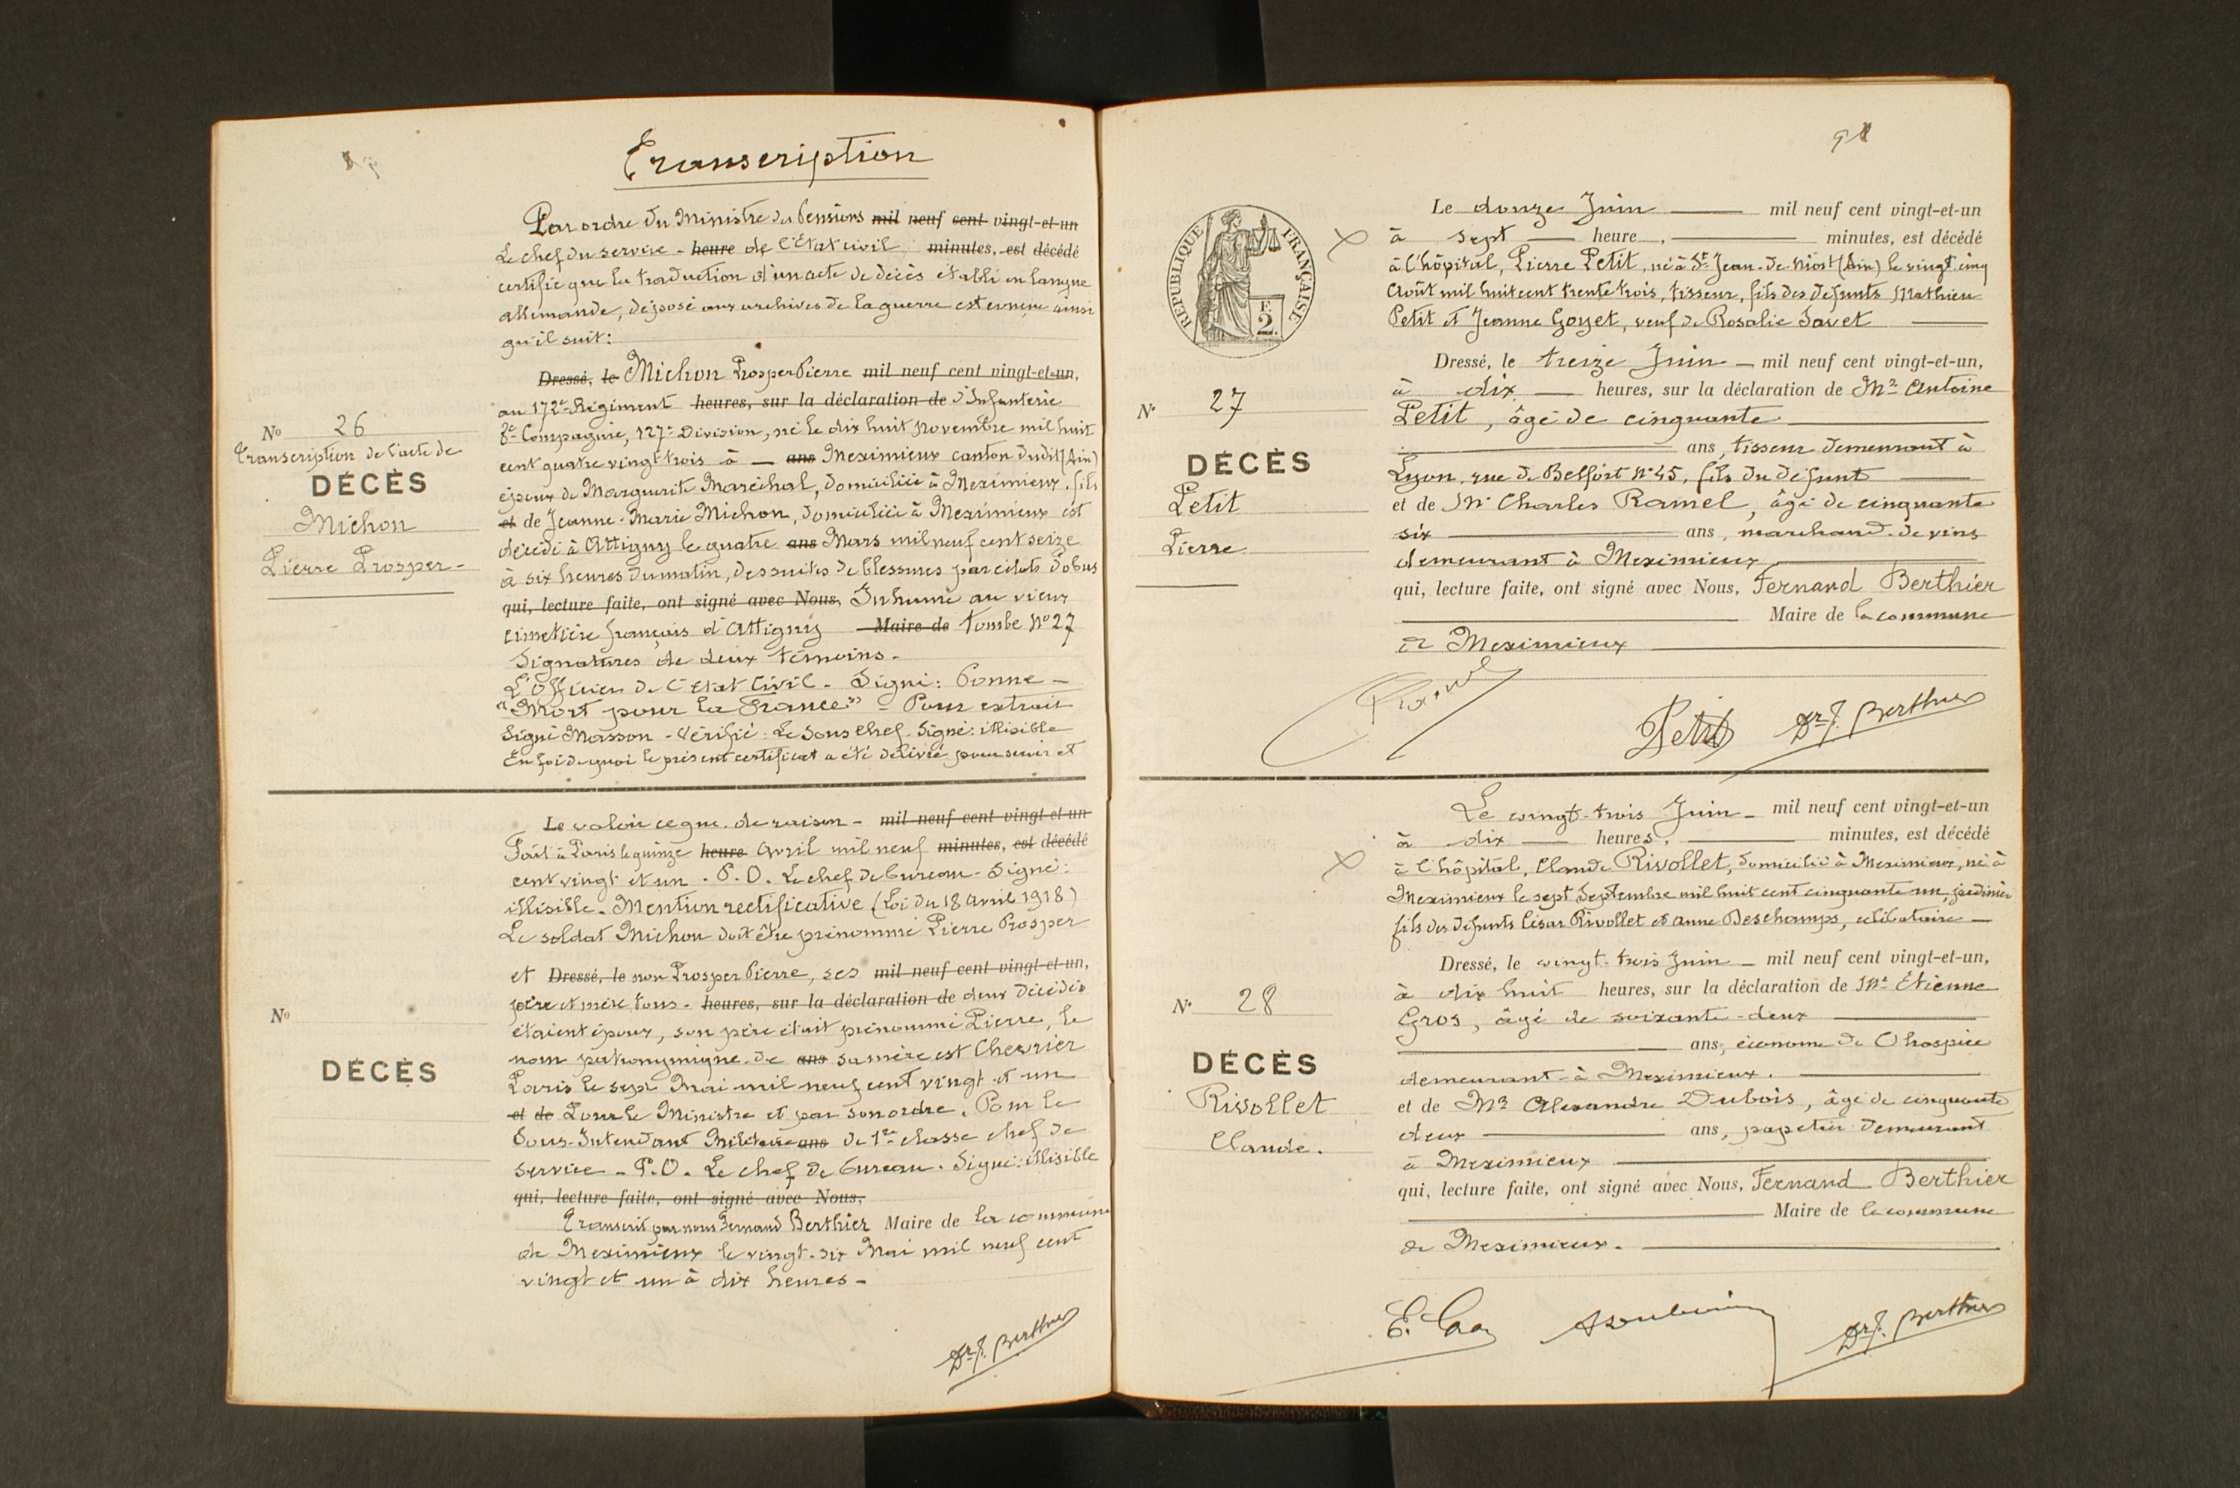 Transcription
Par ordre du Ministre des Pensions mil neuf cent vingt-et-un
Le chef du service - heure de l'Etat civil minutes, est décédé
certifie que la traduction d'un acte de décès établi en langue
allemande, déposé aux archives de la guerre est conçue ainsi
qu'il suit:
Dressé, le Michon Prosper Pierre mil neuf cent vingt-et-un,
au 172e Régiment heures, sur la déclaration de d'Infanterie
Compagnie, 127e Division, né le dix huit Novembre mil huit
cent quatre vingt trois à — ans Meximieux canton dudit (Ain)
époux de Marguerite Maréchal, domicilié à Meximieux, fils
et de Jeanne-Marie Michon, domiciliée à Meximieux est
décédé à Attigny le quatre ans Mars mil neuf cent seize
à six heures du matin, des suites de blessures par éclats d'obus
qui, lecture faite, ont signé avec Nous, Inhumé au vieux
cimetière français d'Attigny Maire de tombe No 27
Signatures de deux témoins -
L'Officier de l'Etat Civil - Signé: Ponne -
"Mort pour la France" - Pour extrait
Signé Masson - Vérifié: Le Sous Chef Signé: illisible
En foi de quoi le présent certificat a été délivré pour servir et
No 26
Transcription de l'acte de
DÉCÈS
Michon
Pierre Prosper -
Le valoir ce que de raison - mil neuf cent vingt-et-un
Fait à Paris le quinze heure Avril mil neuf minutes, est décédé
cent vingt et un. P.O. Le chef de bureau - Signé:
illisible - Mention rectificative (Loi du 18 Avril 1918)
Le soldat Michon doit être prénommé Pierre Prosper
et Dressé, le non Prosper Pierre, ses mil neuf cent vingt-et-un,
père et mère tous - heures, sur la déclaration de deux décédés
étaient époux, son père était prénommé Pierre, le
nom patronymique de ans sa mère est Chevrier
Paris le sept Mai mil neuf cent vingt et un
et de Pour le Ministre et par son ordre. Pour le
Sous-Intendant Militaire ans de 1re classe chef de
service - P.O. Le chef de bureau. Signé: illisible
qui, lecture faite, ont signé avec Nous,
Transcrit par nous Fernand Berthier Maire de la commune
de Meximieux le vingt-six Mai mil neuf cent
vingt et un à dix heures -
No
DÉCÈS
Dr F. Berthier
RÉPUBLIQUE FRANÇAISE
2
Le douze Juin — mil neuf cent vingt-et-un
à sept — heure, — minutes, est décédé
à l'hôpital, Pierre Petit, né à St Jean-de-Niost (Ain) le vingt cinq
Août mil huit cent trente trois, tisseur, fils des défunts Mathieu
Petit et Jeanne Goyet, veuf de Rosalie Savet —
Dressé, le treize Juin — mil neuf cent vingt-et-un,
à dix — heures, sur la déclaration de Mr Antoine
Petit, âgé de cinquante —
— ans, tisseur demeurant à
Lyon, rue de Belfort No 45, fils du défunt —
et de Mr Charles Ramel, âgé de cinquante
six — ans, marchand de vins
demeurant à Meximieux —
qui, lecture faite, ont signé avec Nous, Fernand Berthier
— Maire de la commune
de Meximieux —
Petit Dr F. Berthier
No 27
DÉCÈS
Petit
Pierre
Le vingt-trois Juin - mil neuf cent vingt-et-un
à dix — heures, — minutes, est décédé
à l'hôpital, Claude Rivollet, domicilié à Meximieux, né à
Meximieux le sept Septembre mil huit cent cinquante un, jardinier
fils des défunts César Rivollet et Anne Deschamps, célibataire —
Dressé, le vingt-trois Juin — mil neuf cent vingt-et-un,
à dix huit heures, sur la déclaration de Mr Etienne
Gros, âgé de soixante-deux —
— ans, économe de l'hospice
demeurant à Meximieux. —
et de Mr Alexandre Dubois, âgé de cinquante
deux — ans, papetier demeurant
à Meximieux —
qui, lecture faite, ont signé avec Nous, Fernand Berthier
— Maire de la commune
de Meximieux. —
No 28
DÉCÈS
Rivollet
Claude.
E. Gros Dr F. Berthier